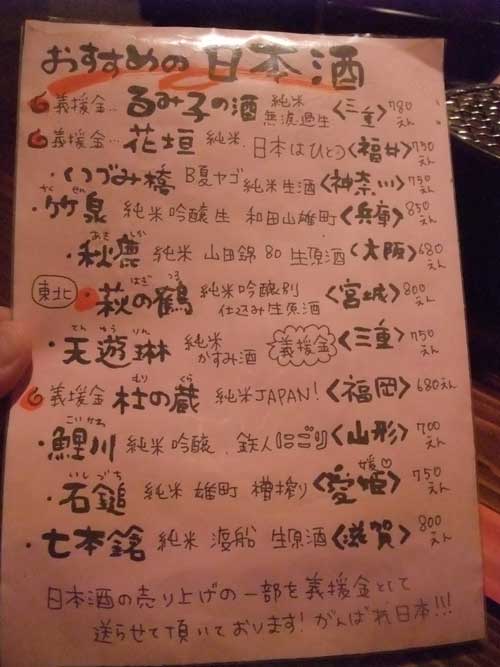 おすすめの日本酒
義援金… るみ子の酒 純米無濾過生 〈三重〉 780えん
義援金… 花垣 純米. 日本はひとつ 〈福井〉 750えん
・いづみ橋 B夏ヤゴ 純米生酒 〈神奈川〉 750えん
・竹泉 純米吟醸生 和田山雄町 〈兵庫〉 850えん
ちくせん
・秋鹿 純米 山田錦80 生原酒 〈大阪〉 680えん
あき しか
東北 萩の鶴 純米吟醸別仕込み生原酒 〈宮城〉 800えん
はぎ つる
・天遊琳 純米かすみ酒 義援金 〈三重〉 750えん
てん ゆう りん
義援金 杜の蔵 純米JAPAN! 〈福岡〉 680えん
もり くら
・鯉川 純米吟醸. 鉄人にごり 〈山形〉 700えん
こいかわ
・石鎚 純米 雄町 槽搾り 〈愛姫〉 媛♡ 750えん
いしづち
・七本鎗 純米 渡船 生原酒 〈滋賀〉 800えん
日本酒の売り上げの一部を義援金として
送らせて頂いております! がんばれ日本!!!